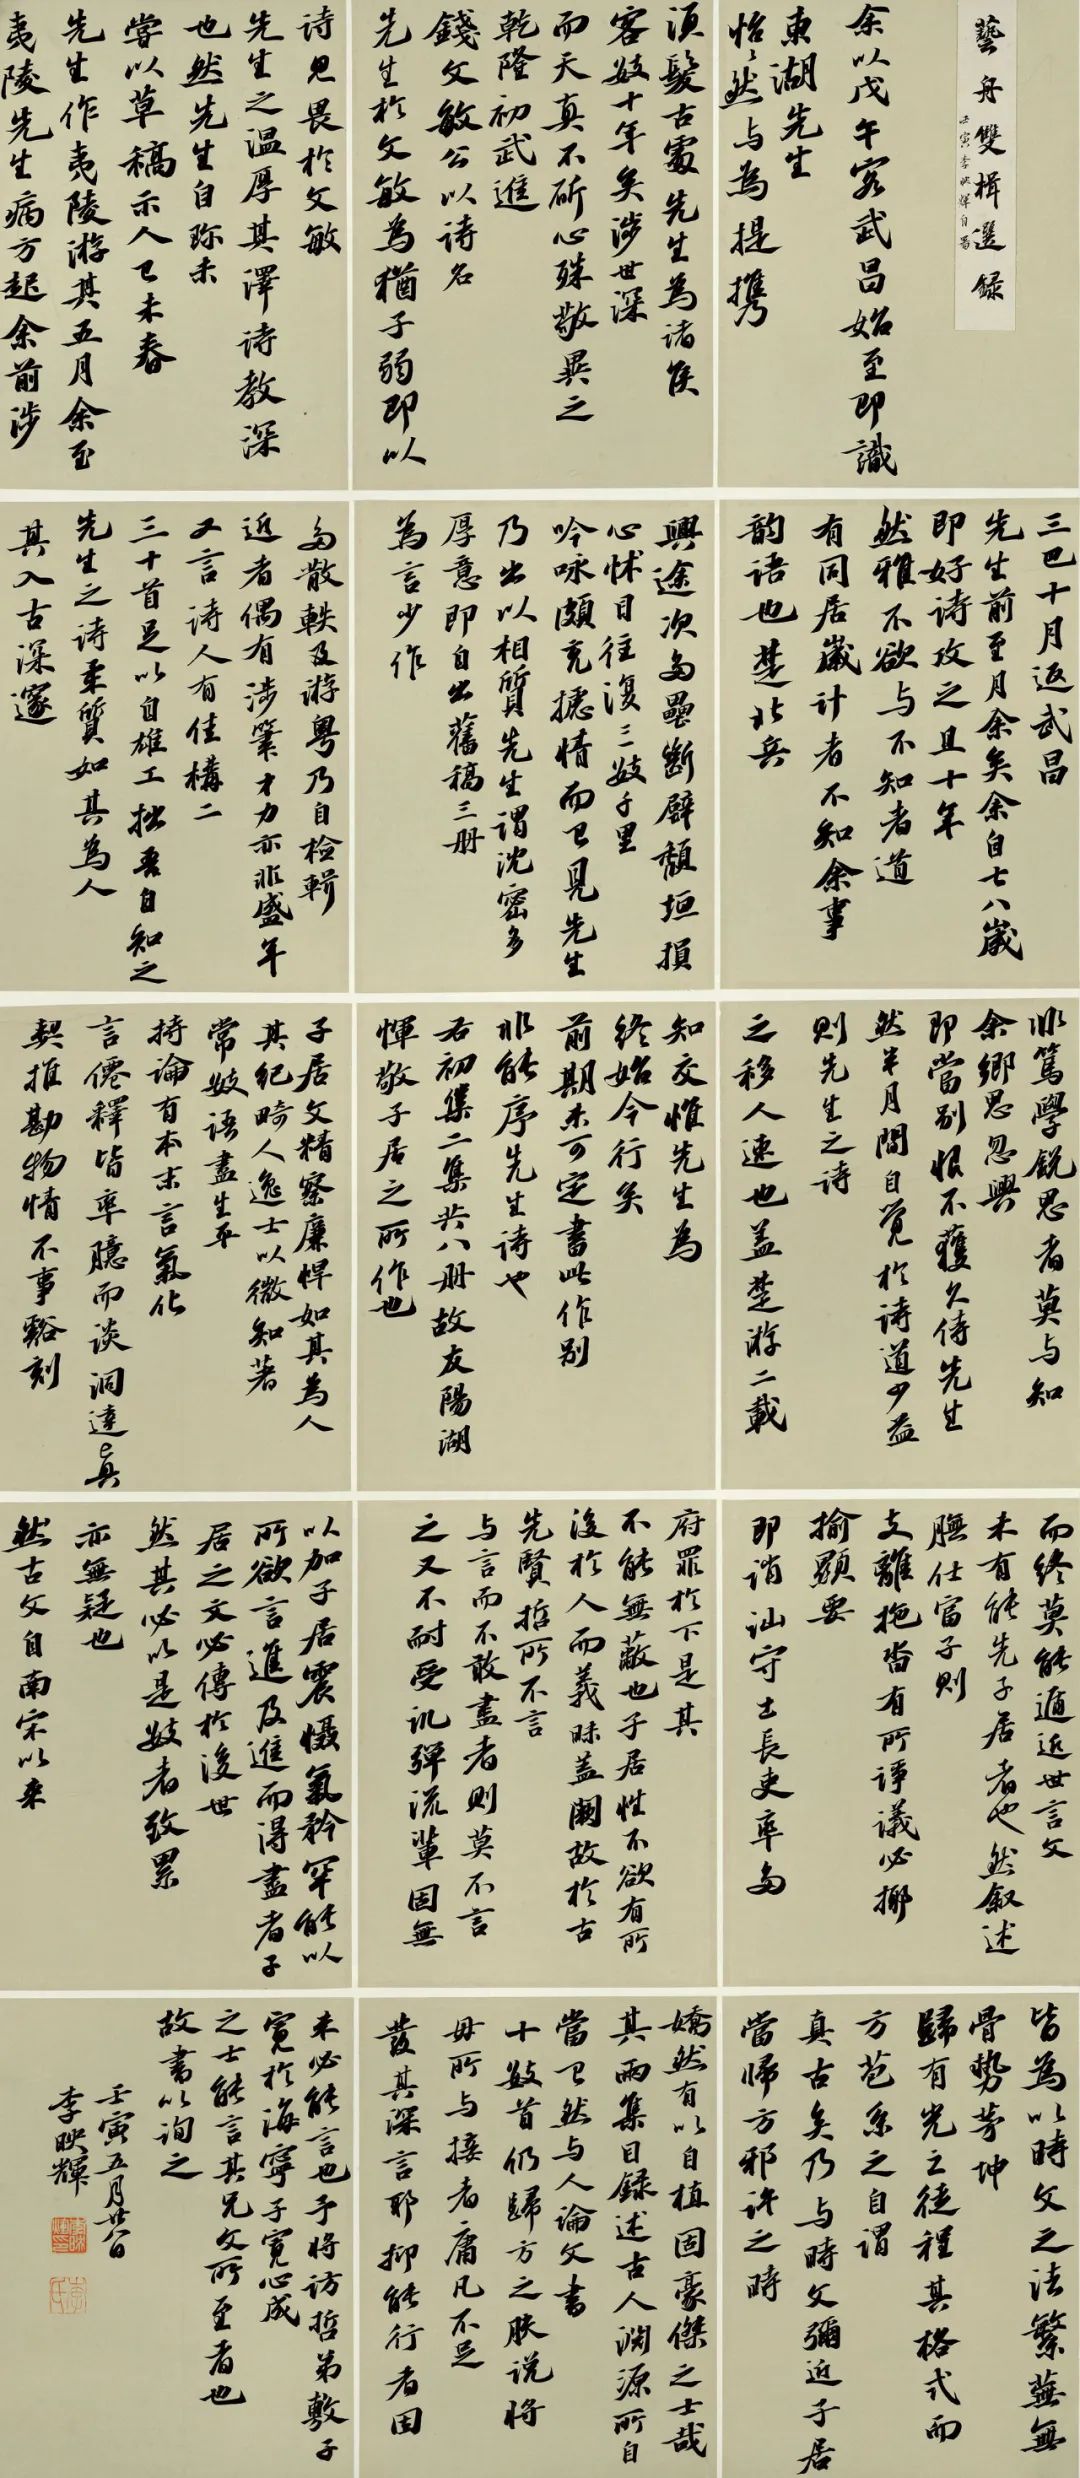 藝舟雙楫選録
壬寅李映輝自署
余以戊午客武昌始至即識
東湖先生
怡怡然与為提携
須髮古處先生為诸侯
客数十年矣涉世深
而天真不斫心殊敬異之
乾隆初武進
錢文敏公以诗名
先生於文敏為猶子弱即以
诗見畏於文敏
先生之温厚其澤诗教深
也然先生自珎未
嘗以草稿示人己未春
先生作夷陵游其五月余至
夷陵先生病方起余前涉
三巴十月返武昌
先生前至月余矣余自七八歲
即好诗攻之且十年
然雅不欲与不知者道
有同居歲计者不知余事
韵语也楚北兵
興途次多壘斷壁頽垣損
心怵目往復三数千里
吟咏頗充摅情而已見先生
乃出以相質先生谓沈密多
厚意即自出舊稿三册
為言少作
多散軼及游粤乃自检輯
近者偶有涉筆才力亦非盛年
又言诗人有佳構二
三十首足以自雄工拙吾自知之
先生之诗柔質如其為人
其入古深邃
非篤學鋭思者莫与知
余鄉思忽興
即當别恨不獲久侍先生
然半月間自覚於诗道少益
則先生之诗
之移人速也盖楚游二載
知交惟先生為
终始今行矣
前期未可定書此作别
非能序先生诗也
右初集二集共八册故友陽湖
惲敬子居之所作也
子居文精察廉悍如其為人
其纪畸人逸士以微知著
常数语盡生平
持論有本末言氣化
言僊释皆率臆而谈洞達真
契推勘物情不事谿刻
而终莫能遁近世言文
未有能先子居者也然叙述
膴仕富子則
支離拖沓有所諍議必揶
揄顯要
即诮讪守士長吏率多
府罪於下是其
不能無蔽也子居性不欲有所
後於人而義昧盖闕故於古
先賢哲所不言
与言而不敢盡者則莫不言
之又不耐受讥弹流輩固無
以加子居震慑氣矜罕能以
所欲言進及進而得盡者子
居之文必傳於後世
然其必以是数者致累
亦無疑也
然古文自南宋以来
皆為以時文之法繁蕪無
骨势茅坤
歸有光之徒程其格式而
方苞系之自谓
真古矣乃与時文彌近子居
當帰方邪许之時
矯然有以自植固豪傑之士哉
其兩集目録述古人渊源所自
當已然与人論文書
十数首仍歸方之肤说将
毋所与接者庸凡不足
發其深言耶抑能行者固
未必能言也予将访哲弟敷子
寛於海寧子寛心成
之士能言其兄文所至者也
故書以询之
壬寅五月廿八日
李映輝